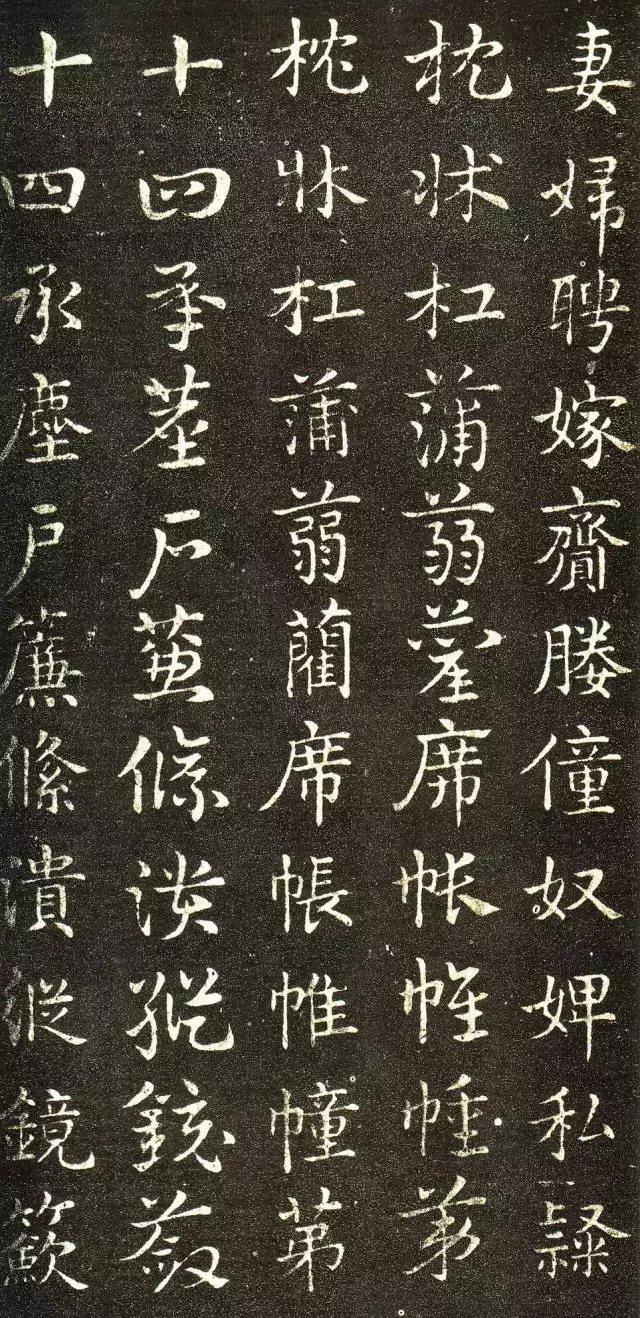 妻婦聘嫁齎媵僮奴婢私隸
枕牀杠蒲蒻藺席帳帷幢第
枕牀杠蒲蒻藺席帳帷幢第
十四承塵戶簾絛潰縱鏡籢
十四承塵戶簾絛潰縱鏡籢